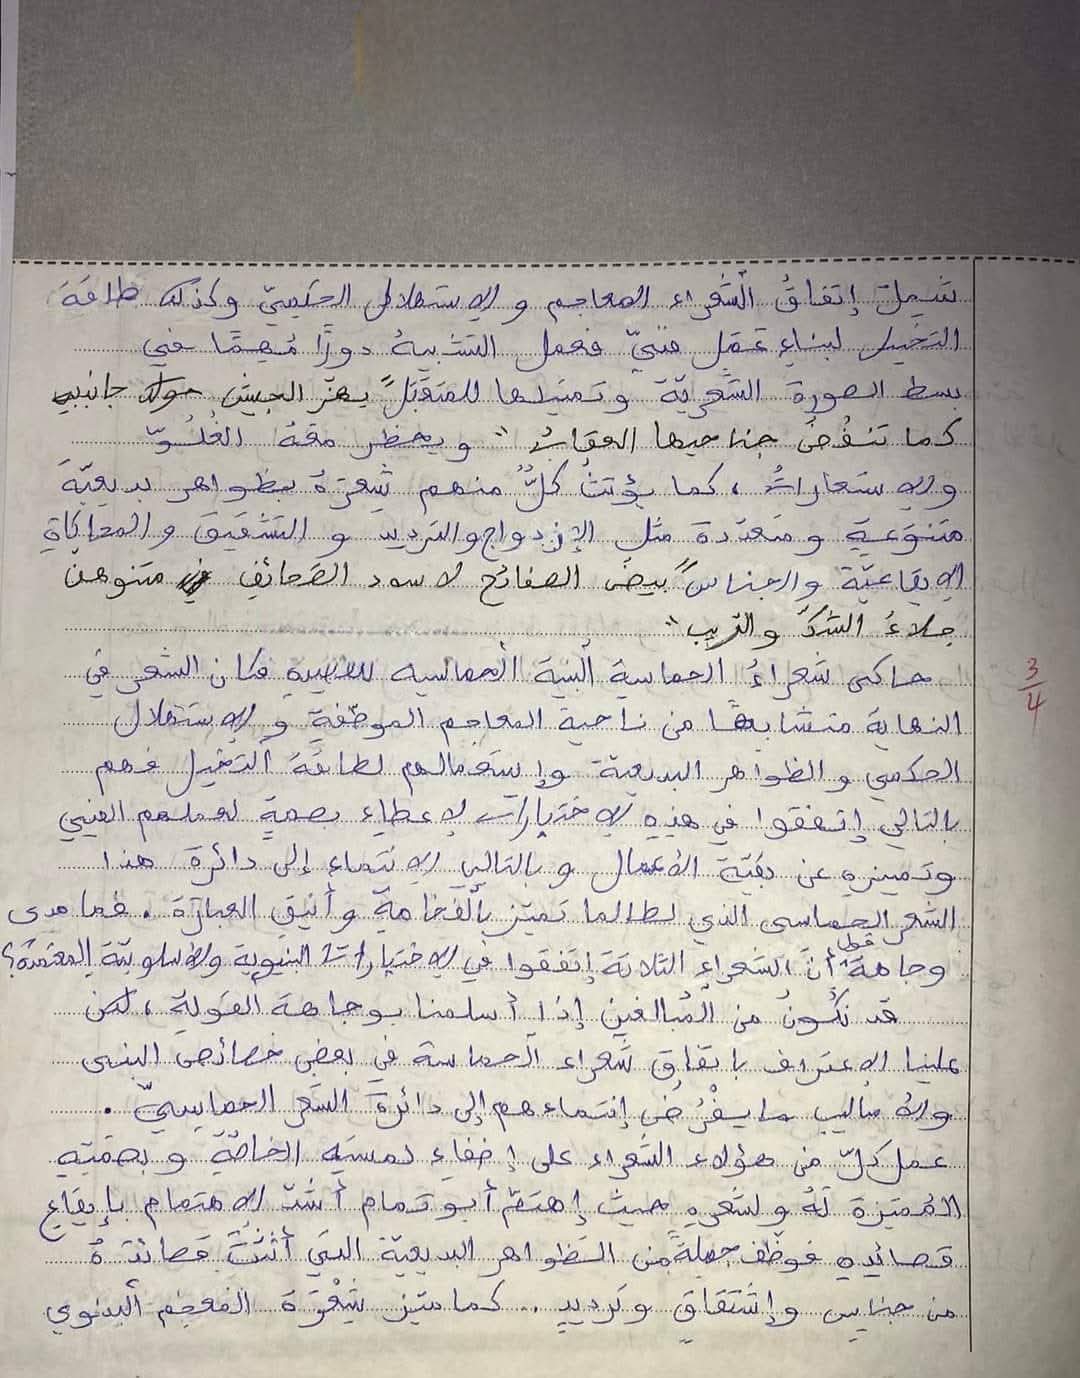 شمل إتفاقُ الشعراء المعاجم و الإستهلال الحكميّ وكذلك طاقة
التخييل لبناءِ عَمَلٍ فنيّ فعمل التشبيهُ دورًا مُهمًّا في
بسط الصورة الشعريّة وتمثيلها للمتقبّل "يهزّ الجيش حولك جانبيه
كما تنفُضُ جناحيها العقابُ" ويحظر معهُ الغُلُوّ
والإستعاراتُ، كما يؤثثُ كلٌّ منهم شعرَهُ بظواهر بديعيّة
متنوّعة ومتعدّدة مثل الإزدواج والترديد و التشقيق والمحاكاة
الإيقاعيّة والجناس "بيضُ الصفائح لا سود الصّحائف في متونهنّ
جلاءُ الشكّ والريب"
حاكى شعراءُ الحماسة البنية الحماسيه للقصيدة فكان الشعر في
النهاية متشابهًا من ناحية المعاجم الموظّفة والإستهلال
الحكمي و الظواهر البديعية وإستعمالهم لطاقة التخييل فهم
بالتالي إتفقوا في هذه الإختيارات لإعطاء بصمةٍ لعملهم الفني
وتمييزه عن بقيّة الأعمال وبالتالي الإنتماء إلى دائرة هذا
الشعر الحماسي الذي لطالما تميّز بالفخامة وأنيق العبارة. فما مدى
وجاهة قول أنّ الشعراء الثلاثة إتفقوا في الإختيارات البنيوية والأسلوبيّة المعتمدة؟
قد نكُونُ من المُبالغين إذا أسلمنا بوجاهة القولة، لكن
علينا الإعتراف باتفاق شعراء الحماسة في بعض خصائص البنى
والأساليب ما يفْرُضُ إنتماءهم إلى دائرة الشعر الحماسيّ.
عمل كلّ من هؤلاء الشُعراء على إضفاء لمسته الخاصّة وبصمته
المُميّزة لهُ ولشعره حيث إهتمّ أبو تمام أشدّ الإهتمام بإيقاع
قصائده فوظّف جملةً من الظواهر البديعيّة التي أثثتْ قصائدهُ
من جناس وإشتقاق وترديد.. كما ميّز شِعْرَهُ المُعجم البدوي